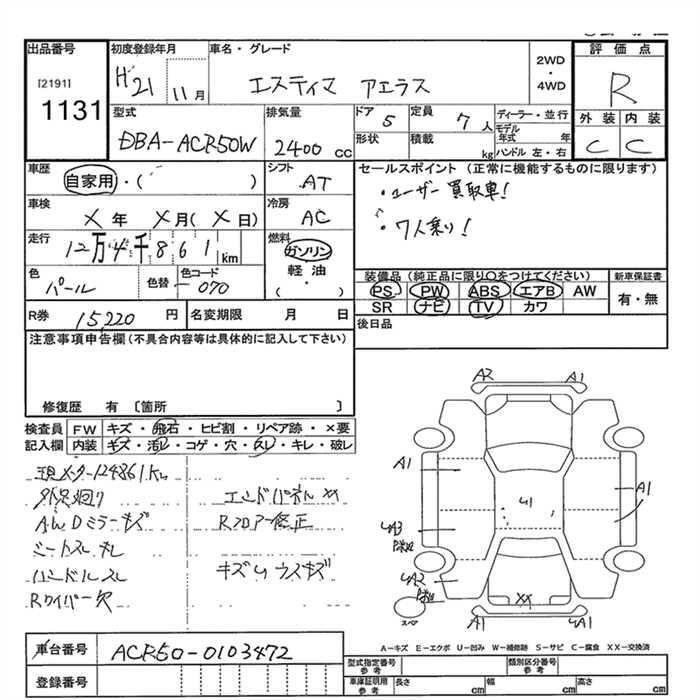 出品番号 初度登録年月 車名・グレード 2WD・4WD 評価点
[2191] 1131 H21 11月 エスティマ アエラス R
外装 内装
C C
型式 排気量 ドア 5 定員 7人 ディーラー・並行
DBA-ACR50W 2400cc 形状 積載 kg モデル年式 年
ハンドル 左・右
車歴 シフト セールスポイント (正常に機能するものに限ります)
自家用・( ) AT ・ユーザー買取車!
車検 冷房
X年 X月(X日) AC ・7人乗り!
走行 燃料
12万4千861km ガソリン
軽油
( ・ )
色 パール 色替 色コード 070
装備品 (純正品に限り○をつけてください) 新車保証書
PS PW ABS エアB AW 有・無
SR ナビ TV カワ
R券 15,220円 名変期限 月 日 後日品
注意事項申告欄(不具合内容等は具体的に記入して下さい)
修復歴 有 〔箇所 〕
検査員 FW キズ・飛石・ヒビ割・リペア跡・×要
記入欄 内装 キズ・汚レ・コゲ・穴・スレ・キレ・破レ
現メーター124861Km
外汎廻り エンドパネルXX
AWDミラーキズ Rフロアー修正
シートスレ キレ
ハンドルスレ キズ ウスキズ
Rワイパー欠
A2 A1
A1
U1
A1
UA3
UA2
XX
スペア A1 A1
A-キズ E-エクボ U-凹み W-補修跡 S-サビ C-腐食 XX-交換済
車台番号 ACR50-0103472
登録番号
型式指定番号 参考 類別区分番号 参考
車庫証明用 参考 長さ cm 幅 cm 高さ cm